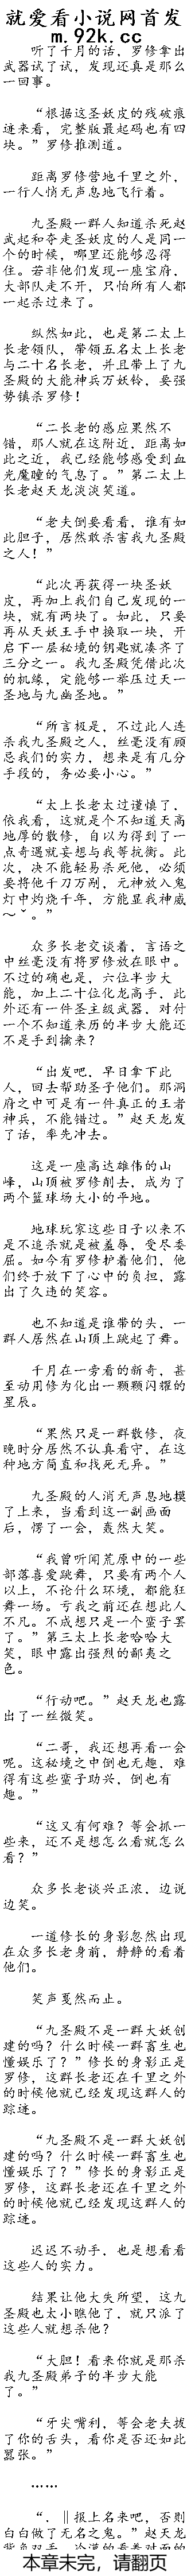 就爱看小说网首发
m.92k.cc
听了千月的话，罗修拿出
武器试了试，发现还真是那么
一回事。
“根据这圣妖皮的残破痕
迹来看，完整版最起码也有四
块。”罗修推测道。
距离罗修营地千里之外，
一行人悄无声息地飞行着。
九圣殿一群人知道杀死赵
武起和夺走圣妖皮的人是同一
个的时候，哪里还能够忍得
住。若非他们发现一座宝府，
大部队走不开，只怕所有人都
一起杀过来了。
纵然如此，也是第二太上
长老领队，带领五名太上长老
与二十名长老，并且带上了九
圣殿的大能神兵万妖铃，要强
势镇杀罗修！
“二长老的感应果然不
错，那人就在这附近，距离如
此之近，我已经能够感受到血
光魔瞳的气息了。”第二太上
长老赵天龙淡淡笑道。
“老夫倒要看看，谁有如
此胆子，居然敢杀害我九圣殿
之人！”
“此次再获得一块圣妖
皮，再加上我们自己发现的一
块，就有两块了。如此，只要
再从天妖王手中换取一块，开
启下一层秘境的钥匙就凑齐了
三分之一。我九圣殿凭借此次
的机缘，定能够一举压过天一
圣地与九幽圣地。”
“所言极是，不过此人连
杀我九圣殿之人，丝毫没有顾
忌我们的实力，想来是有几分
手段的，务必要小心。”
“太上长老太过谨慎了，
依我看，这就是个不知道天高
地厚的散修，自以为得到了一
点奇遇就妄想与我等抗衡。此
次，决不能轻易杀死他，必须
要将他千刀万剐，元神放入鬼
灯中灼烧千年，方能显我神威
～ˇ。”
众多长老交谈着，言语之
中丝毫没有将罗修放在眼中。
不过的确也是，六位半步大
能，加上二十位化龙高手，此
外还有一件圣主级武器，对付
一个不知道来历的半步大能还
不是手到擒来？
“出发吧，早日拿下此
人，回去帮助圣子他们。那洞
府之中可是有一件真正的王者
神兵，不能错过。”赵天龙发
了话，率先冲去。
这是一座高达雄伟的山
峰，山顶被罗修削去，成为了
两个篮球场大小的平地。
地球玩家这些日子以来不
是不追杀就是被羞辱，受尽委
屈。如今有罗修护着他们，他
们终于放下了心中的负担，露
出了久违的笑容。
也不知道是谁带的头，一
群人居然在山顶上跳起了舞。
千月在一旁看的新奇，甚
至动用修为化出一颗颗闪耀的
星辰。
“果然只是一群散修，夜
晚时分居然不认真看守，在这
种地方简直和找死无异。”
九圣殿的人消无声息地摸
了上来，当看到这一副画面
后，愣了一会，轰然大笑。
“我曾听闻荒原中的一些
部落喜爱跳舞，只要有两个人
以上，不论什么环境，都能狂
舞一场。亏我之前还在想此人
不凡。不成想只是一个蛮子罢
了。”第三太上长老哈哈大
笑，眼中露出强烈的鄙夷之
色。
“行动吧。”赵天龙也露
出了一丝微笑。
“二哥，我还想再看一会
呢。这秘境之中倒也无趣，难
得有这些蛮子助兴，倒也有
趣。”
“这又有何难？等会抓一
些来，还不是想怎么看就怎么
看？”
众多长老谈兴正浓，边说
边笑。
一道修长的身影忽然出现
在众多长老身前，静静的看着
他们。
笑声戛然而止。
“九圣殿不是一群大妖创
建的吗？什么时候一群畜生也
懂娱乐了？”修长的身影正是
罗修，这群长老还在千里之外
的时候他就已经发现这群人的
踪迹。
“九圣殿不是一群大妖创
建的吗？什么时候一群畜生也
懂娱乐了？”修长的身影正是
罗修，这群长老还在千里之外
的时候他就已经发现这群人的
踪迹。
迟迟不动手，也是想看看
这些人的实力。
结果让他大失所望，这九
圣殿也太小瞧他了，就只派了
这些人就想杀他？
“大胆！看来你就是那杀
我九圣殿弟子的半步大能
了。”
“牙尖嘴利，等会老夫拔
了你的舌头，看你是否还如此
嚣张。”
……
“．‖报上名来吧，否则
白白做了无名之鬼。”赵天龙
本章未完，请翻页